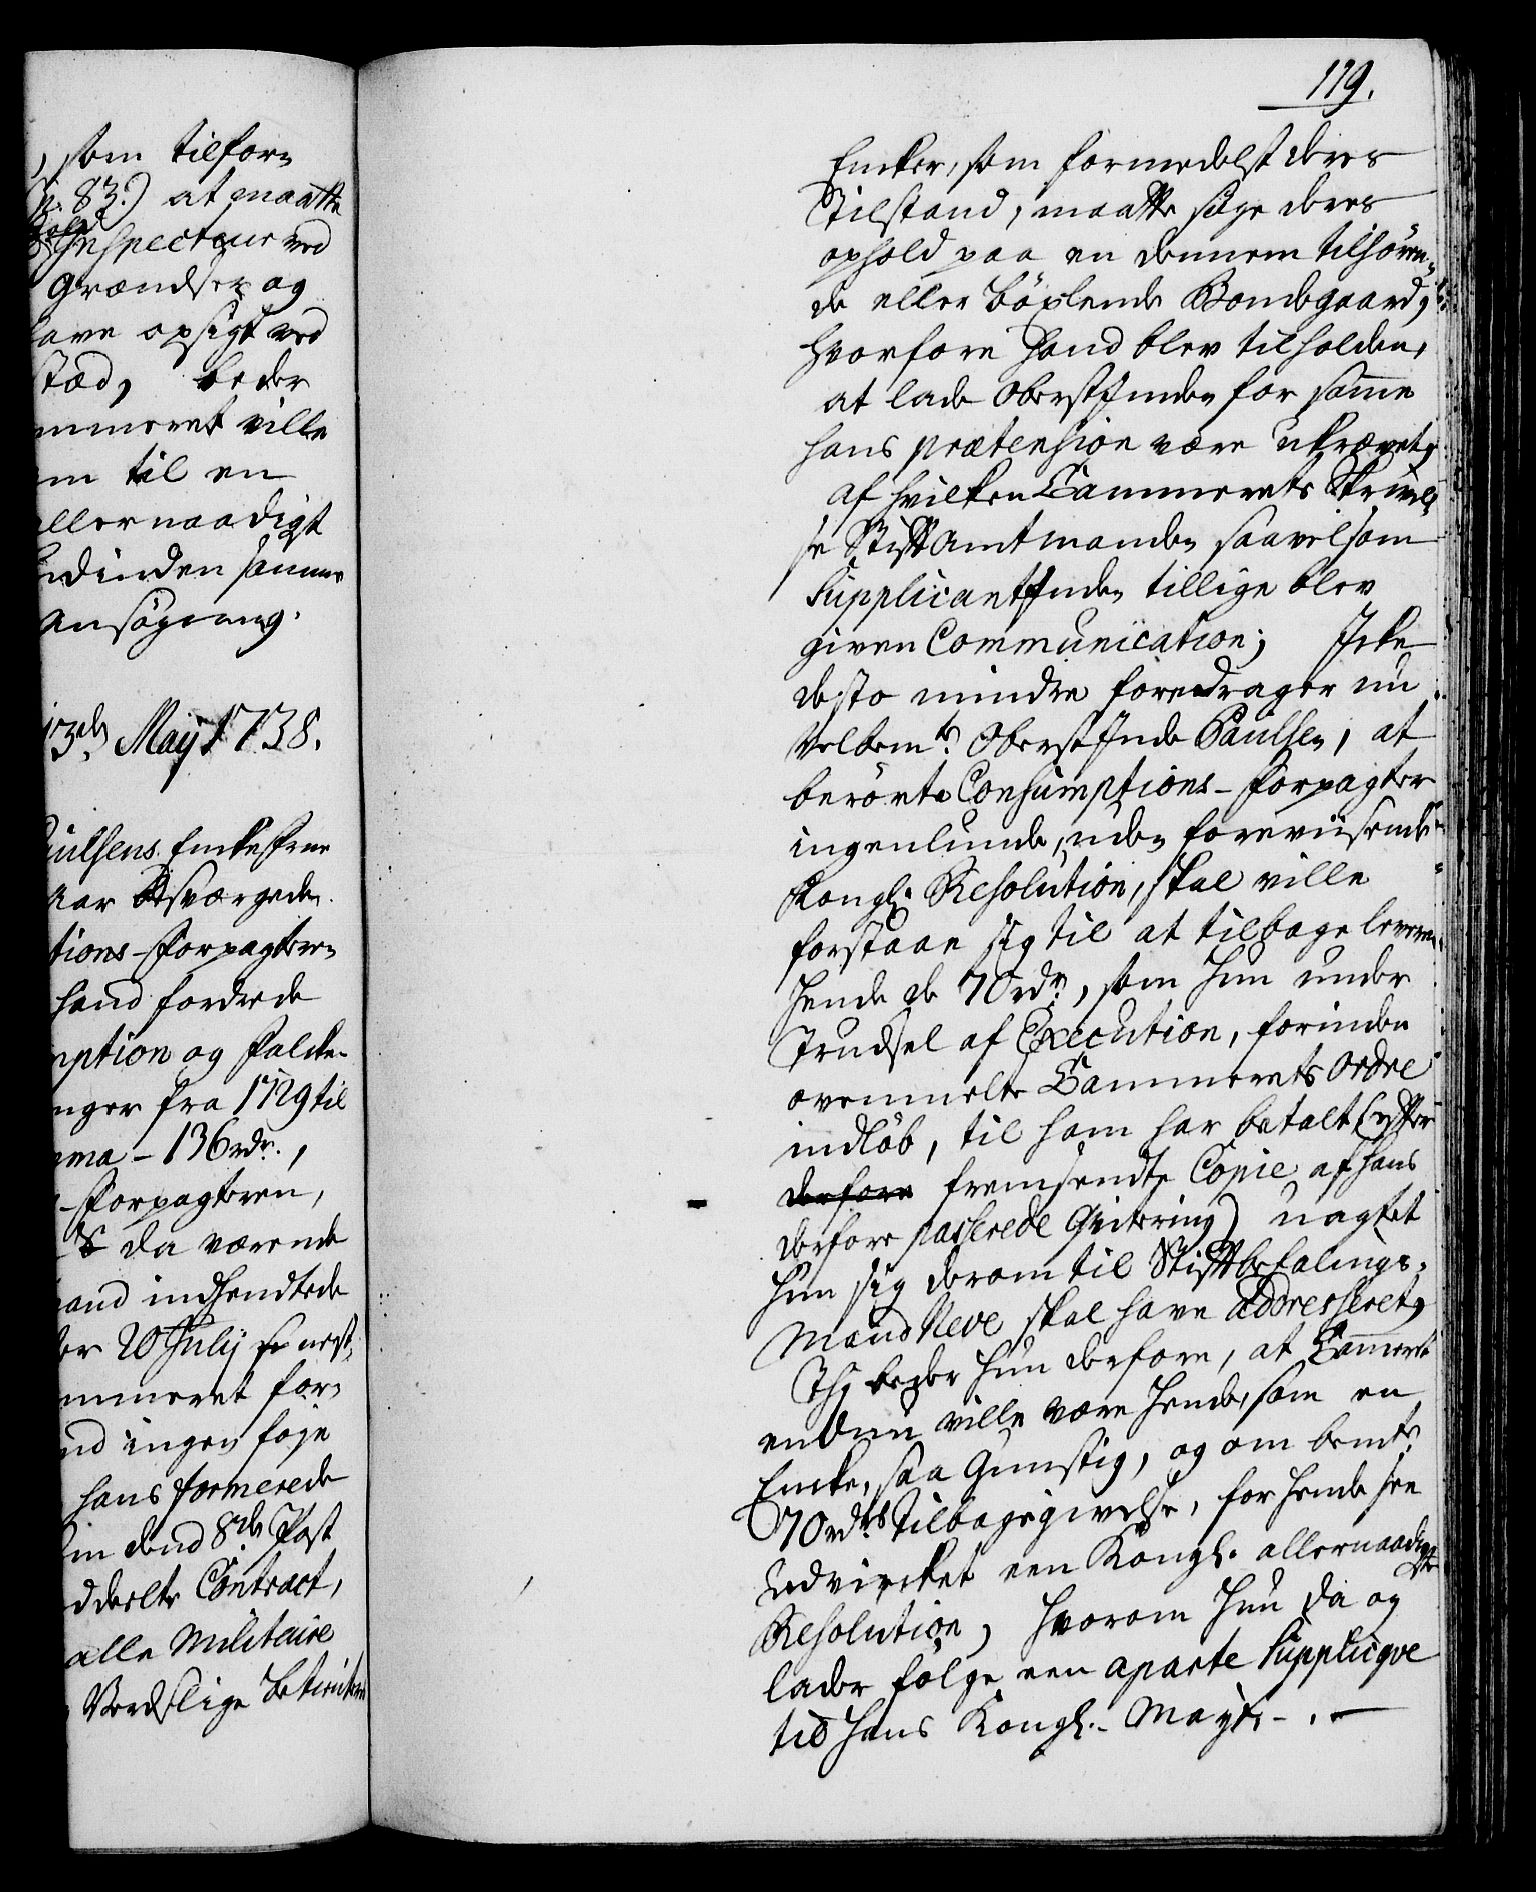 , som tilforn
p. 83.) at maatte
Told
Inspecteur ved
Grændser og
have opsigt ved
stæd, beder
ammeret ville
m til en
allernaadigst
indinden samme
ansøgning.
13de May 1738.
Paulsens Enkefrue
Aar besværgede
tions-Forpagteren
hand fordrede
mption og Folcke-
nger fra 1729 til
mma - 136 rdr.,
-Forpagteren,
da værende
mand indhendtede
er 20 July nest-
ammeret for-
nd ingen føje
hans formerede
in dend 8de Post
ddeelte Contract,
alle Militaire
Verdslige Betienter
119.
Encker, som formedelst deres
Tilstand, maatte søge deres
ophold paa en dennem tilhören-
de eller böxlende Bondegaard,
hvorfore hand blev tilholden,
at lade Oberstinden for samme
hans prætension være ukrævet,
af hvilken Cammerets Skrivel-
se Stiftamtmanden saavelsom
Supplicantinden tillige blev
given Communication; Icke
desto mindre foredrager nu
Velbemte. Oberstinde Paulsen, at
berörte Consumptions-Forpagter
ingenlunde, uden foreviisende
Kongl. Resolution, skal ville
forstaae sig til at tilbage levere
hende de 70 rdr, som hun under
Trudsel af Execution, forinden
ovenmelte Cammerets Ordre
indløb, til ham har betalt (efter
derfore fremsendte Copie af hans
derfore passerede Qvitering) uagtet
hun sig derom til Stiftbefalings-
Mand Neve skal have addresseret,
Thi beder hun derfore, at Cammeret
endnu ville være hende, som en
Encke, saa Gunstig, og om bemte.
70 rdrs tilbagegivelse, for hende see
udvircket een Kongl. allernaadigste
Resolution, hvorom hun da og
lader følge een aparte Supplicqve
til Hans Kongl. Mayt. - . -